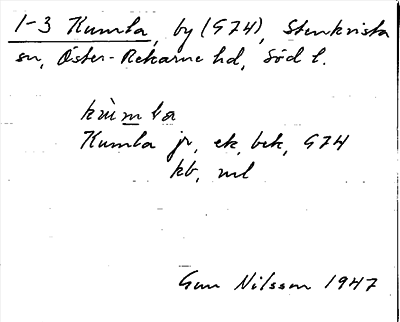 1-3 Kumla, by (G74), Stenkvista
sn, Öster-Rekarne hd, Södl.
Kumla jr, ek, bek, G74
kb, ml
Gun Nilsson 1947